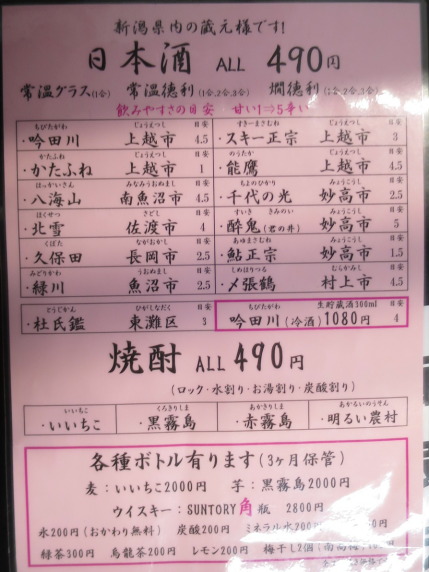 新潟県内の蔵元様です!
日本酒 ALL 490円
常温グラス(1合) 常温徳利(1合,2合,3合) 燗徳利(1合,2合,3合)
飲みやすさの目安 甘い1⇒5辛い
ちびたがわ じょうえつし 目安 すきーまさむね じょうえつし 目安
・吟田川 上越市 4.5 ・スキー正宗 上越市 3
かたふね じょうえつし のうたか じょうえつし
・かたふね 上越市 1 ・能鷹 上越市 4.5
はっかいさん みなみうおぬまし ちよのひかり みょうこうし
・八海山 南魚沼市 4.5 ・千代の光 妙高市 2.5
ほくせつ さどし 目安 すいき きみのい みょうこうし 目安
・北雪 佐渡市 4 ・酔鬼(君の井) 妙高市 5
くぼた ながおかし 目安 あゆまさむね みょうこうし 目安
・久保田 長岡市 2.5 ・鮎正宗 妙高市 1.5
みどりかわ うおぬまし 目安 しめはりつる むらかみし 目安
・緑川 魚沼市 2.5 ・〆張鶴 村上市 4.5
とうじかん ひがしなだく 目安 ちびたがわ 生貯蔵酒300ml 目安
・杜氏鑑 東灘区 3 吟田川(冷酒)1080円 4
焼酎 ALL 490円
(ロック・水割り・お湯割り・炭酸割り)
いいちこ くろきりしま あかきりしま あかるいのうそん
・いいちこ ・黒霧島 ・赤霧島 ・明るい農村
各種ボトル有ります(3ヶ月保管)
麦：いいちこ2000円 芋：黒霧島2000円
ウイスキー：SUNTORY角瓶 2800円
氷200円(おかわり無料) 炭酸200円 ミネラル水200円
緑茶300円 烏龍茶200円 レモン200円 梅干し2個(南高梅)